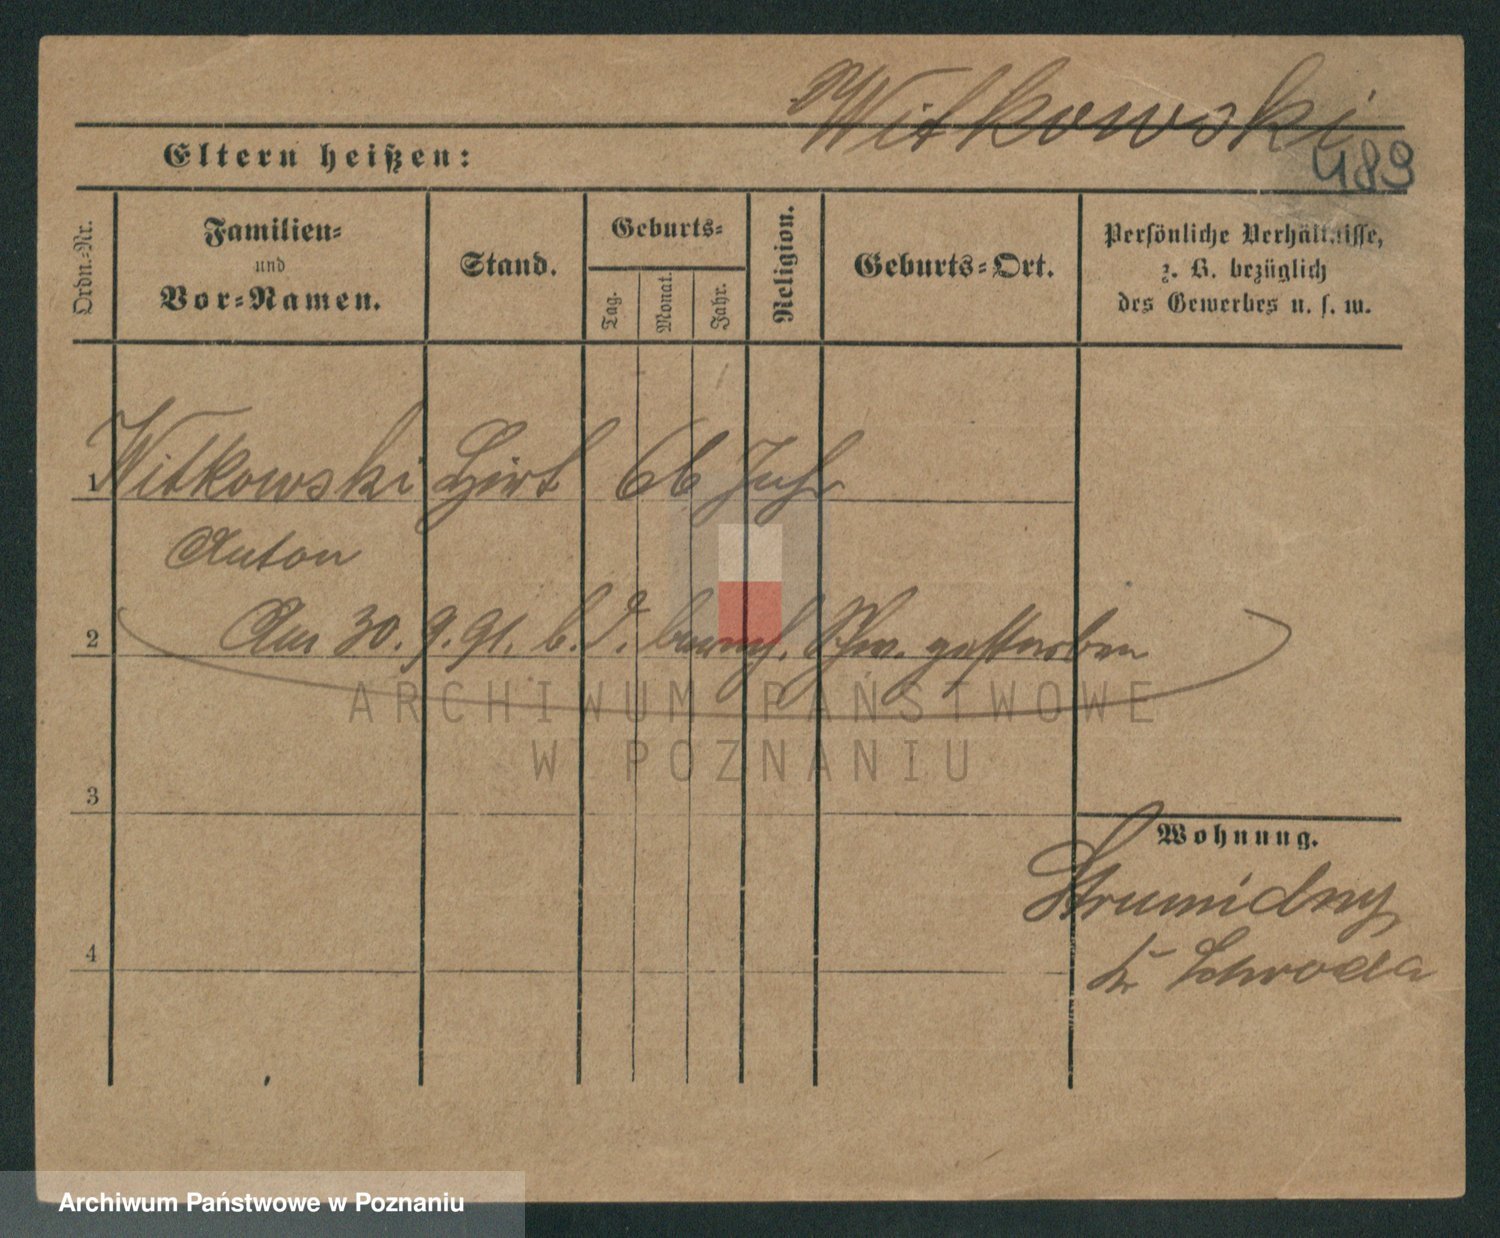 Witkowski
489
Eltern heißen:
Ordn.-Nr.
Familien-
und
Vor-Namen.
Stand.
Geburts-
Tag.
Monat.
Jahr.
Religion.
Geburts-Ort.
Persönliche Verhältnisse,
z. B. bezüglich
des Gewerbes u. s. w.
1 Witkowski Hirt 66 Jahr
Anton
2 Am 30. 9. 91. b. d. barmh. Schw. gestorben
ARCHIWUM PAŃSTWOWE
W POZNANIU
3
Wohnung.
4
Kr Schroda
Archiwum Państwowe w Poznaniu